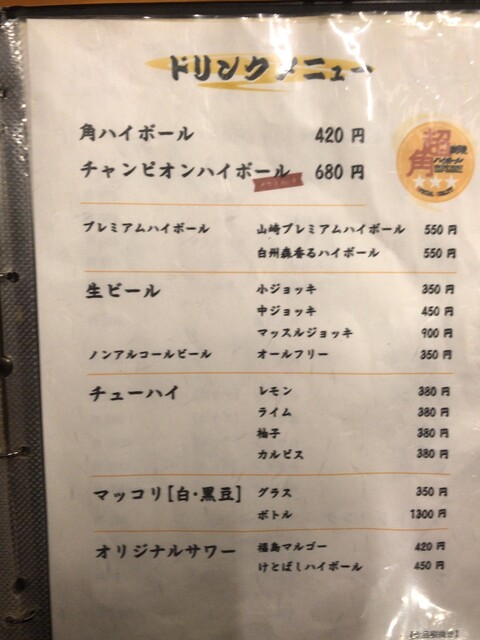 ドリンクメニュー
角ハイボール 420 円
チャンピオンハイボール 680 円
超角
ハイボール
プレミアムハイボール 山崎プレミアムハイボール 550 円
白州森香るハイボール 550 円
生ビール 小ジョッキ 350 円
中ジョッキ 450 円
マッスルジョッキ 900 円
ノンアルコールビール オールフリー 350 円
チューハイ レモン 380 円
ライム 380 円
柚子 380 円
カルピス 380 円
マッコリ[白・黒豆] グラス 350 円
ボトル 1300 円
オリジナルサワー 福島マルゴー 420 円
けとばしハイボール 450 円